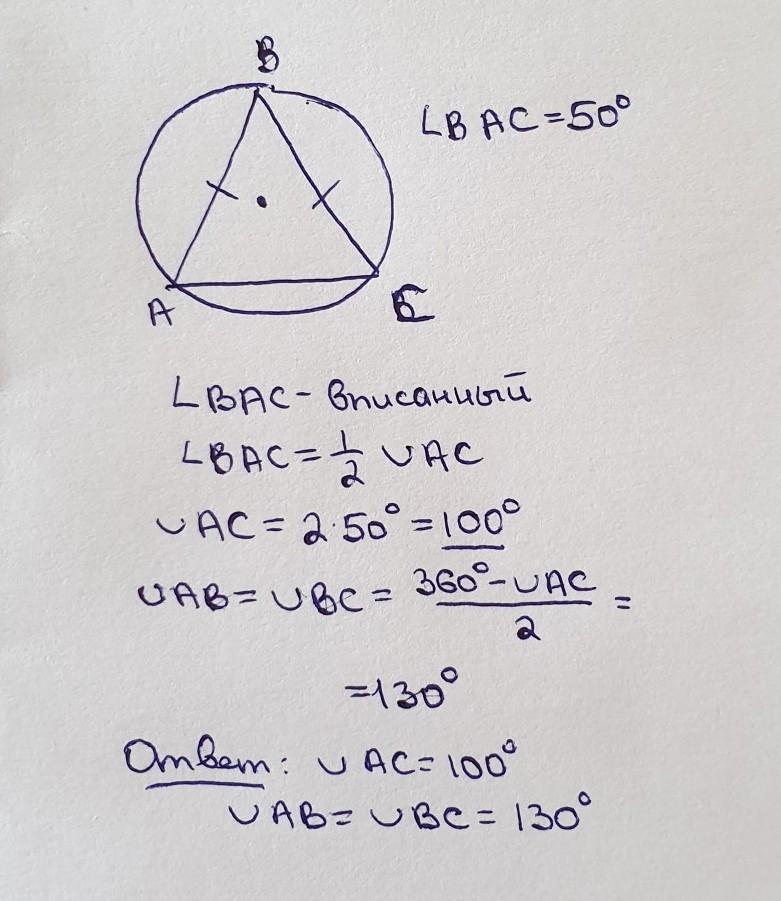 B
∠BAC=50°
A
C
∠BAC- вписанный
∠BAC=1/2 ∪AC
∪AC=2·50°=100°
∪AB=∪BC= (360°-∪AC)/2 =
=130°
Ответ: ∪AC=100°
∪AB=∪BC=130°